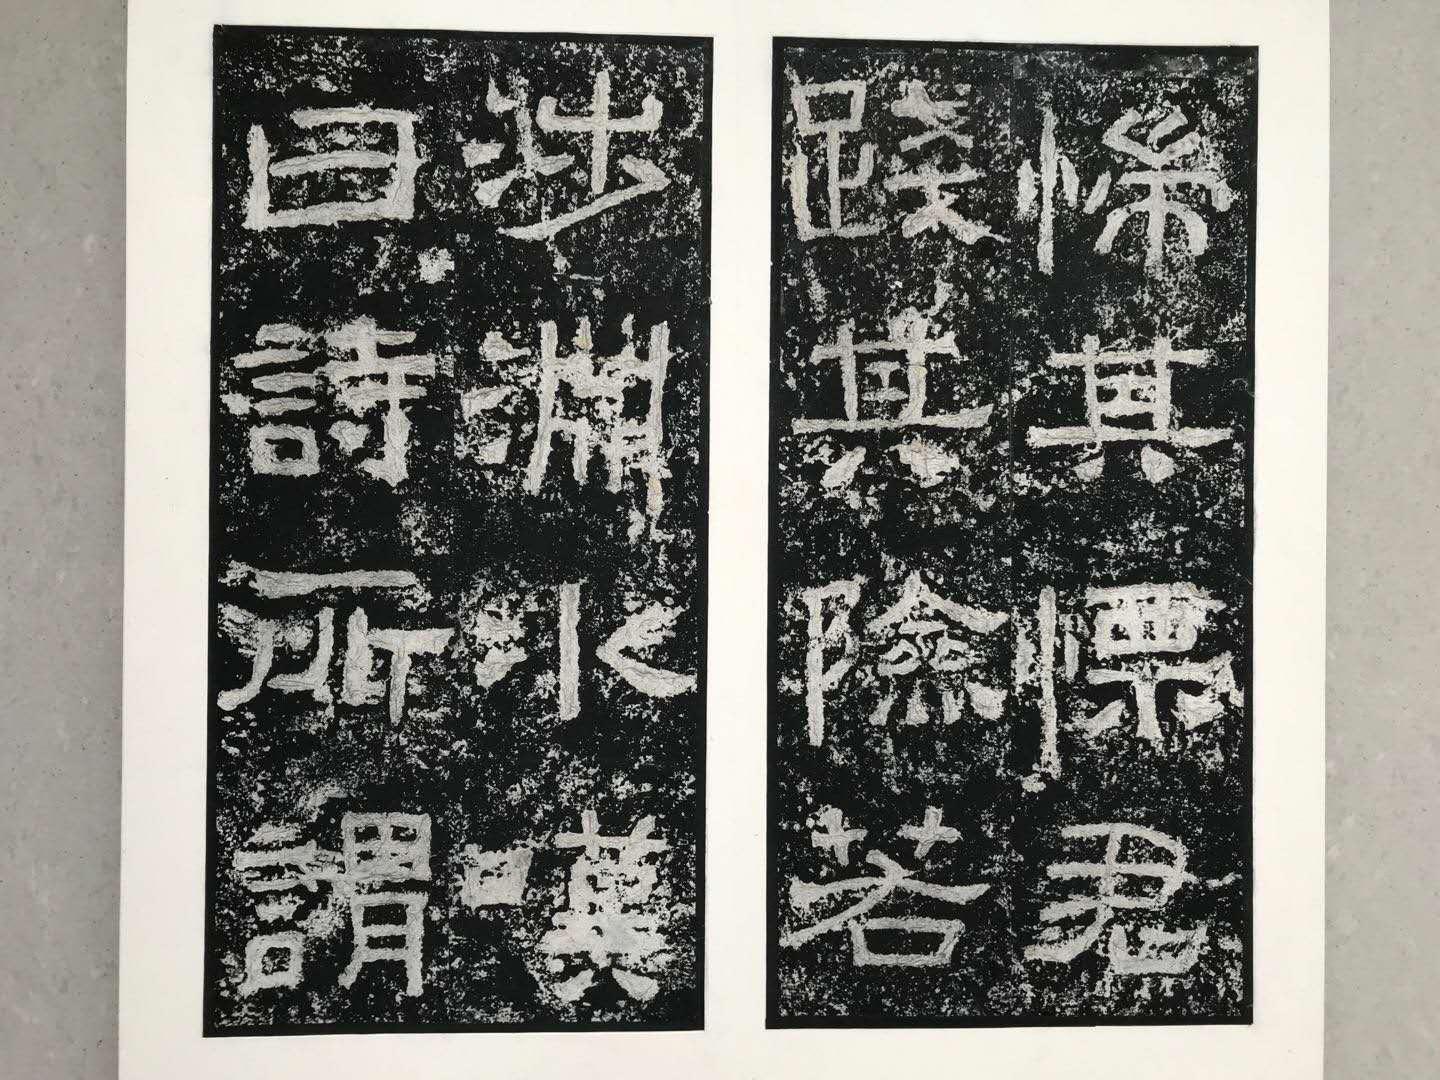 惴其慄君
踐其險若
涉淵冰嘆
曰詩所謂